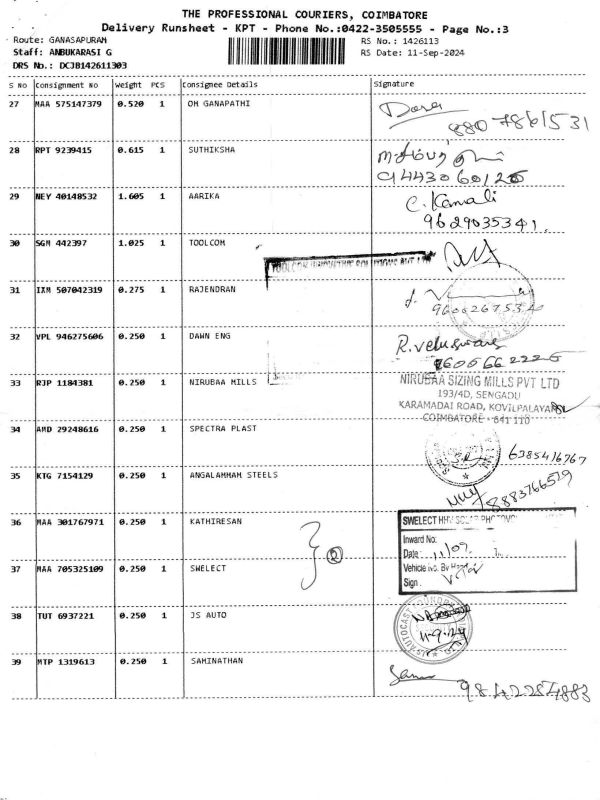 THE PROFESSIONAL COURIERS, COIMBATORE
Delivery Runsheet - KPT - Phone No.:0422-3505555 - Page No.:3
Route: GANASAPURAM
RS No.: 1426113
Staff: ANBUKARASI G
RS Date: 11-Sep-2024
DRS No.: DCJB142611303
S No Consignment No Weight PCS Consignee Details Signature
27 MAA 575147379 0.520 1 OM GANAPATHI
28 RPT 9239415 0.615 1 SUTHIKSHA
9443060126
29 NEY 40148532 1.605 1 AARIKA C. Kamali
9629035341.
30 SGM 442397 1.025 1 TOOLCOM
TOOLCOM INNOVATIVE SOLUTIONS PVT LTD
31 IXM 507042319 0.275 1 RAJENDRAN
32 VPL 946275606 0.250 1 DAWN ENG
33 RJP 1184381 0.250 1 NIRUBAA MILLS NIRUBAA SIZING MILLS PVT LTD
193/4D, SENGADU
KARAMADAI ROAD, KOVILPALAYAM
COIMBATORE - 641 110
34 AMD 29248616 0.250 1 SPECTRA PLAST
6385416767
35 KTG 7154129 0.250 1 ANGALAMMAN STEELS
8883766579
36 MAA 301767971 0.250 1 KATHIRESAN
SWELECT
Inward No:
Date 11/09
Vehicle No. By Hand
Sign
37 MAA 705325109 0.250 1 SWELECT
38 TUT 6937221 0.250 1 JS AUTO
11-9-24
39 MTP 1319613 0.250 1 SAMINATHAN
9842284883